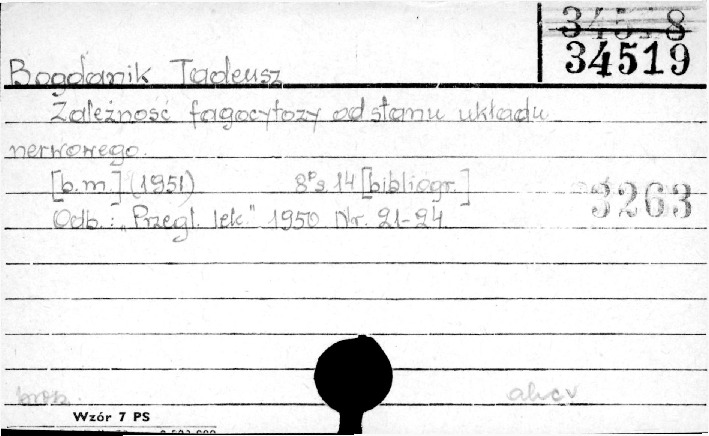 34519
Bogdanik Tadeusz
Zależność fagocytozy od stanu układu
nerwowego.
[b.m.] (1951) 8° s. 14 [bibliogr.]
3263
Odb.: „Przegl. lek." 1950 Nr. 21-24.
Wzór 7 PS